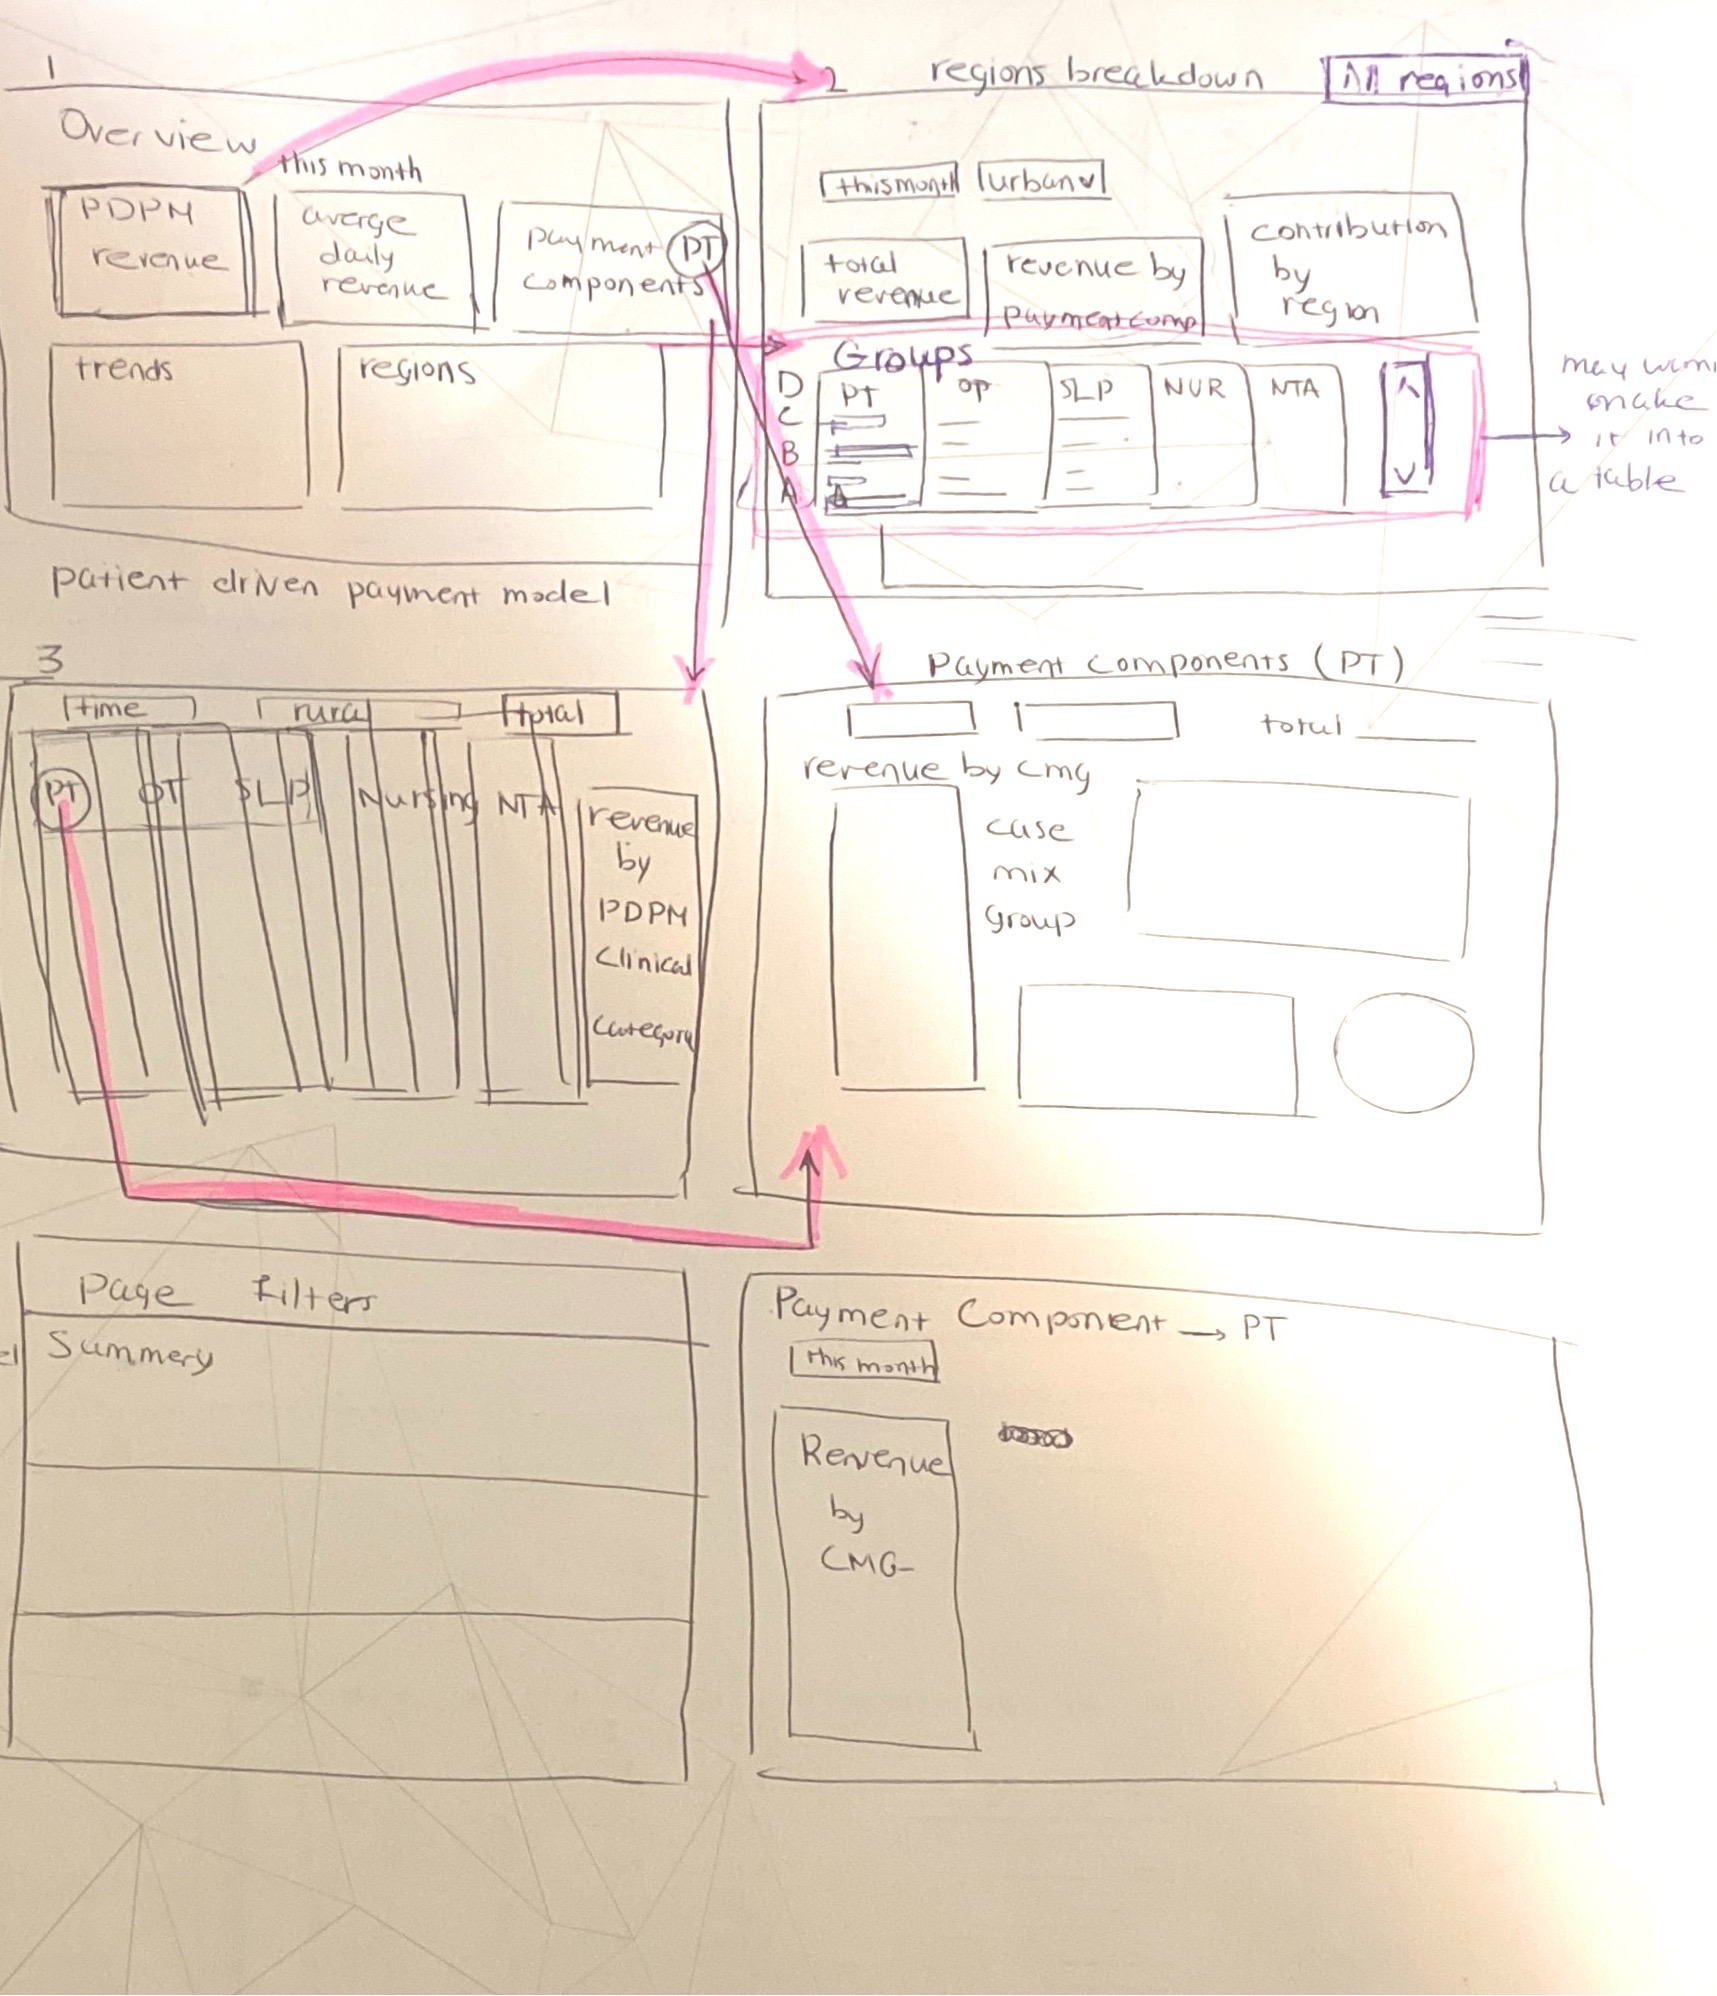 1
Overview
this month
PDPM
revenue
averge
daily
revenue
payment PT
components
trends
regions
patient driven payment model
2
regions breakdown
All regions
this month
urban
total
revenue
revenue by
payment comp
contribution
by
region
Groups
D
C
B
A
PT
op
SLP
NUR
NTA
make
it into
a table
3
time
rural
total
PT
OT
SLP
Nursing
NTA
revenue
by
PDPM
Clinical
Category
Payment Components (PT)
total
revenue by cmg
case
mix
group
Page Filters
Summery
Payment Component → PT
this month
Revenue
by
CMG